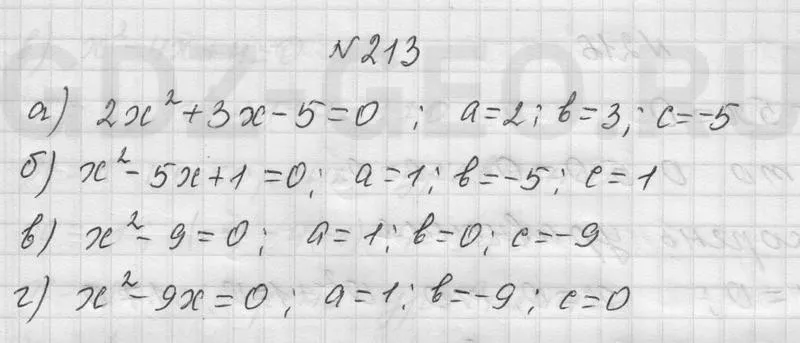 №213
а) 2x² + 3x - 5 = 0 ; a = 2 ; в = 3 ; c = -5
б) x² - 5x + 1 = 0 ; a = 1 ; в = -5 ; c = 1
в) x² - 9 = 0 ; a = 1 ; в = 0 ; c = -9
г) x² - 9x = 0 ; a = 1 ; в = -9 ; c = 0